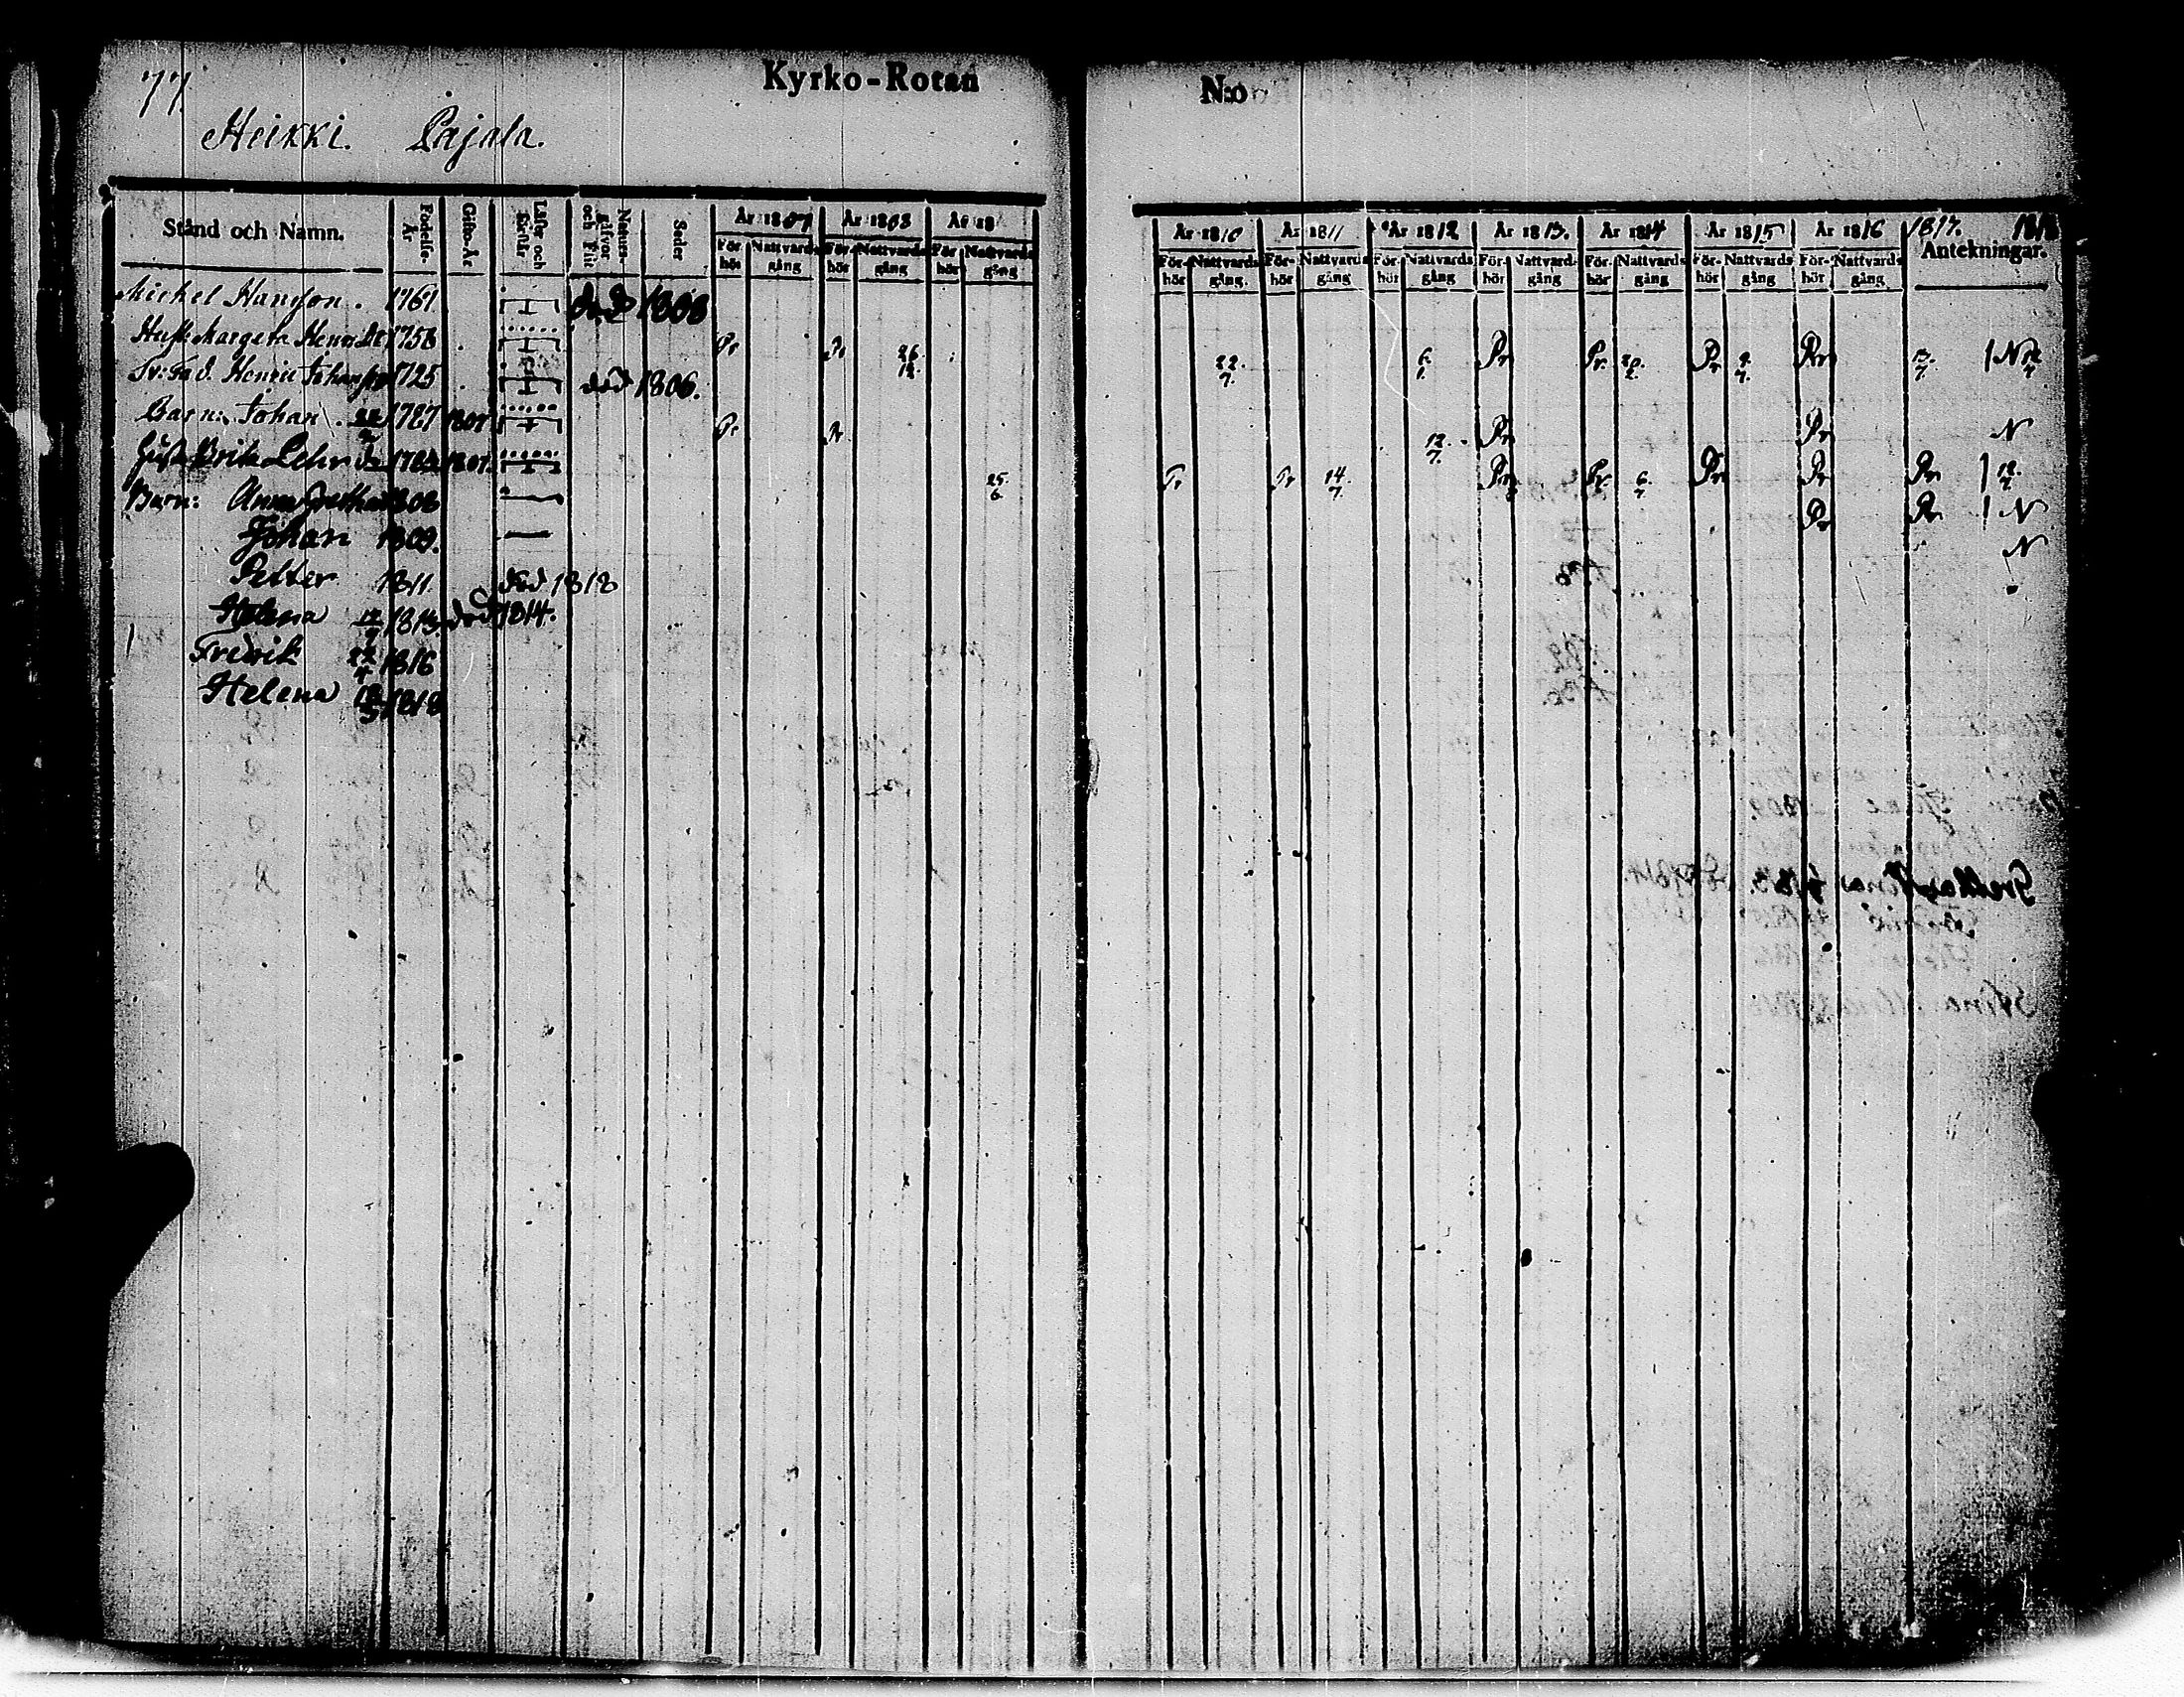 77
Kyrko-Rotan N:o
Heikki. Pajala.
Stånd och Namn. Födelse-År Gifto-År Läsa och förstår Naturs-gifvor och Flit Seder År 1807 År 1808 År 18 År 1810 År 1811 År 1812 År 1813. År 1814 År 1815 År 1816 1817. 1818
För-hör Nattvards gång För-hör Nattvards gång För-hör Nattvards gång För-hör Nattvards gång För-hör Nattvards gång För-hör Nattvards gång För-hör Nattvards gång För-hör Nattvards gång För-hör Nattvards gång För-hör Nattvards gång Antekningar.
Michel Hansson. 1761 död 1808
Hust: Margeta Henr: Dr 1758 Pr Pr 26/12. 22/7. 6/1. Pr Pr. 20/2. Pr Pr N
Sv: Fad. Henric Johansson 1725 död 1806.
Barn: Johan 1787 1807 Pr Pr 12/7. Pr Pr N
Hust: Brita Lehr 1807. 25/6. Pr Pr 14/7. Pr Pr 6/7 Pr Pr Pr
Barn: Anna Gretha 1808 Pr Pr N
Johan 1809. N
Petter 1811 död 1818
Helena 1813. död 1814.
Fredrik 22/4 1816
Helena 1818